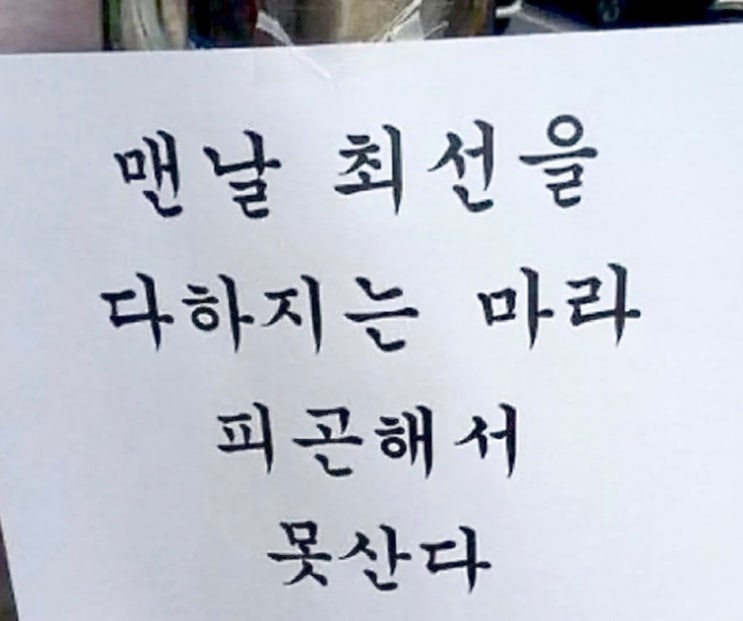 맨날 최선을
다하지는 마라
피곤해서
못산다